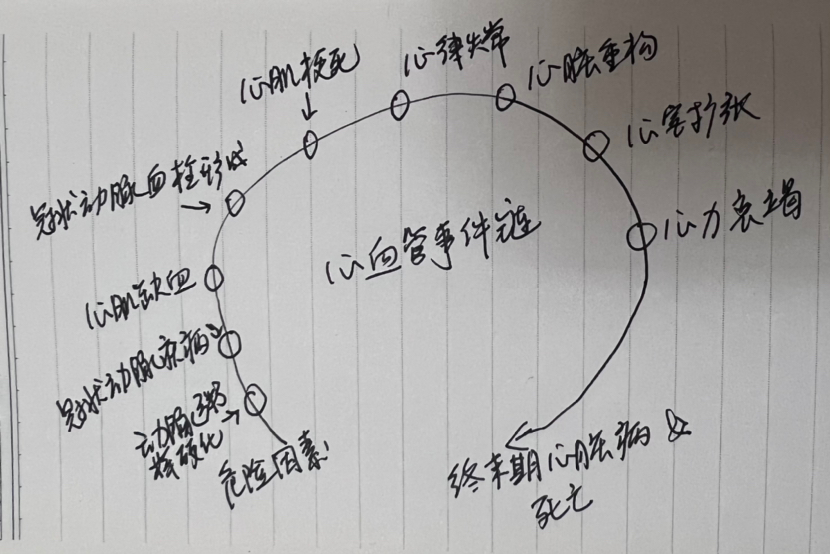 心肌梗死
心律失常
心脏重构
心室扩张
心力衰竭
冠状动脉血栓形成
心血管事件链
心肌缺血
冠状动脉疾病
动脉粥
样硬化
危险因素
终末期心脏病 &
死亡